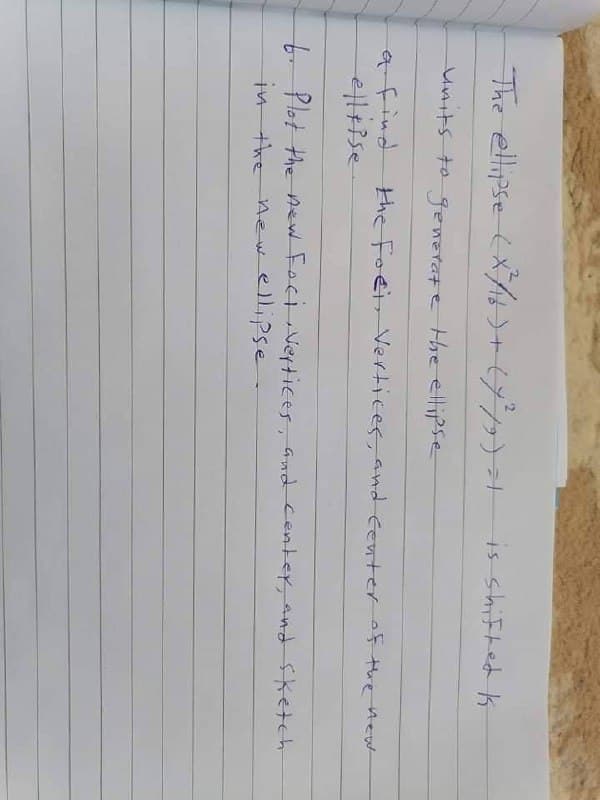 The ellipse (x²/16) + (y²/9) = 1 is shifted k
units to generate the ellipse
a. find the foci, vertices, and center of the new
ellipse.
b. Plot the new foci, vertices, and center, and sketch
in the new ellipse.